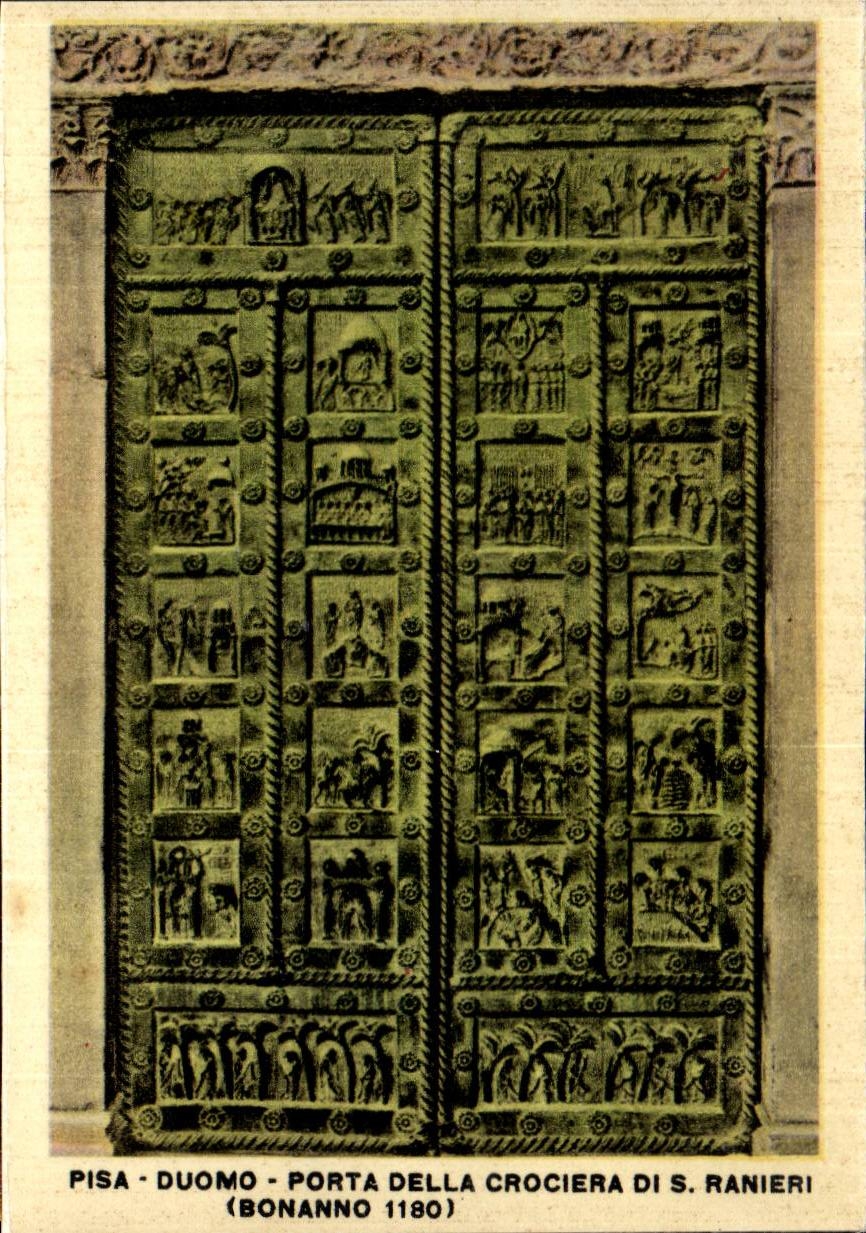 PISA - DUOMO - PORTA DELLA CROCIERA DI S. RANIERI
(BONANNO 1180)